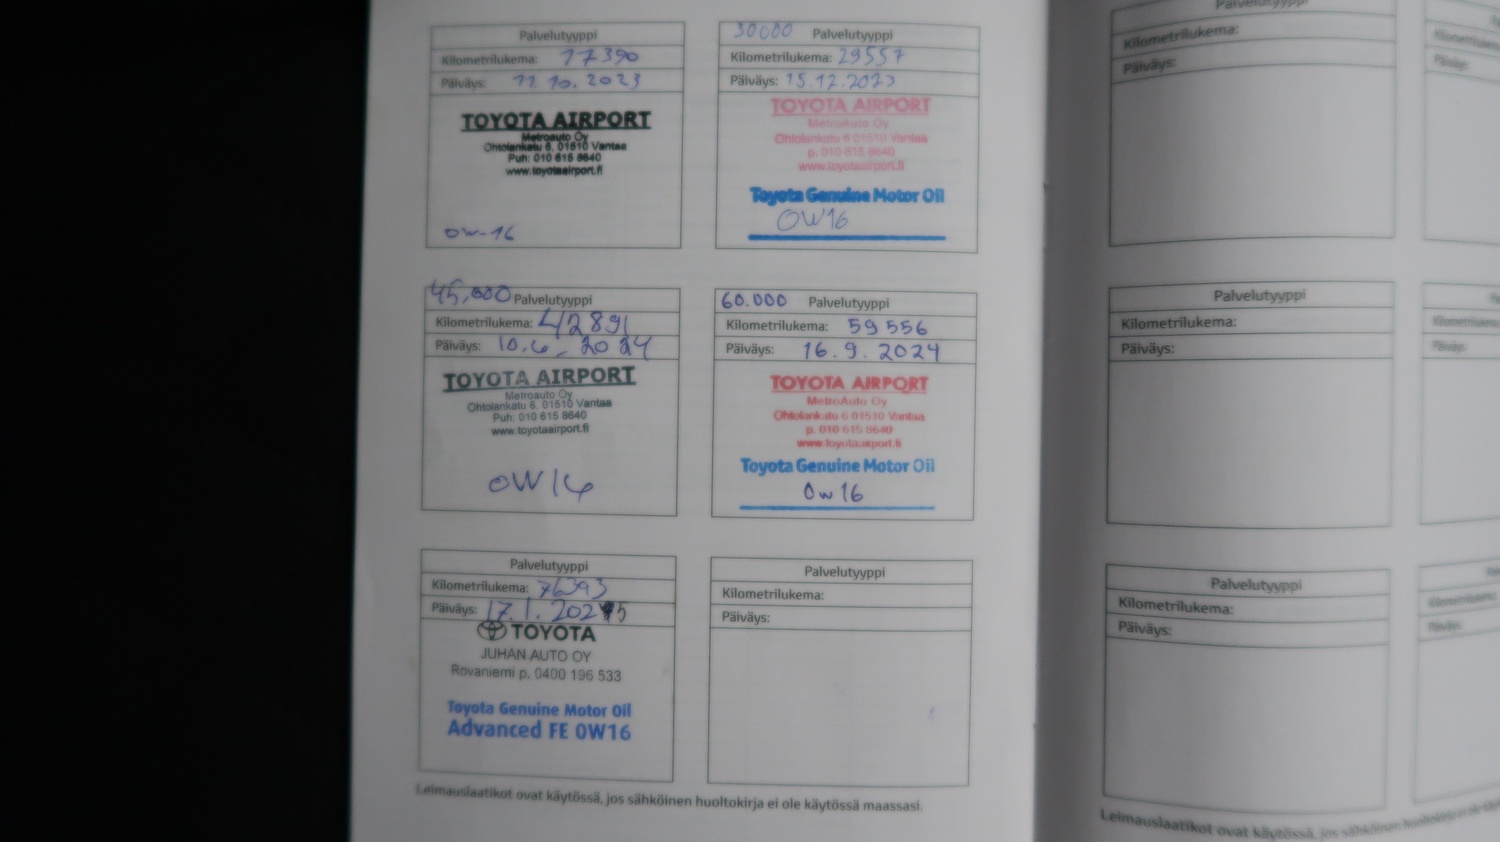 Palvelutyyppi
Kilometrilukema: 17390
Päiväys: 11.10.2023
TOYOTA AIRPORT
Metroauto Oy
Ohtolankatu 6, 01510 Vantaa
Puh: 010 615 8640
www.toyotaairport.fi
0w-16
30000 Palvelutyyppi
Kilometrilukema: 29557
Päiväys: 15.12.2023
TOYOTA AIRPORT
MetroAuto Oy
Ohtolankatu 6 01510 Vantaa
p. 010 615 8640
www.toyotaairport.fi
Toyota Genuine Motor Oil
0W16
45,000 Palvelutyyppi
Kilometrilukema: 42891
Päiväys: 10.6.2024
TOYOTA AIRPORT
Metroauto Oy
Ohtolankatu 6, 01510 Vantaa
Puh: 010 615 8640
www.toyotaairport.fi
0W16
60.000 Palvelutyyppi
Kilometrilukema: 59556
Päiväys: 16.9.2024
TOYOTA AIRPORT
MetroAuto Oy
Ohtolankatu 6 01510 Vantaa
p. 010 615 8640
www.toyotaairport.fi
Toyota Genuine Motor Oil
0w16
Palvelutyyppi
Kilometrilukema: 76393
Päiväys: 17.1.2025
TOYOTA
JUHAN AUTO OY
Rovaniemi p. 0400 196 533
Toyota Genuine Motor Oil
Advanced FE 0W16
Palvelutyyppi
Kilometrilukema:
Päiväys:
Leimauslaatikot ovat käytössä, jos sähköinen huoltokirja ei ole käytössä maassasi.
Palvelutyyppi
Kilometrilukema:
Päiväys:
Kilometrilukema:
Päiväys:
Palvelutyyppi
Kilometrilukema:
Päiväys:
Kilometrilukema:
Päiväys:
Palvelutyyppi
Kilometrilukema:
Päiväys:
Kilometrilukema:
Päiväys:
Leimauslaatikot ovat käytössä, jos sähköinen huoltokirja ei ole